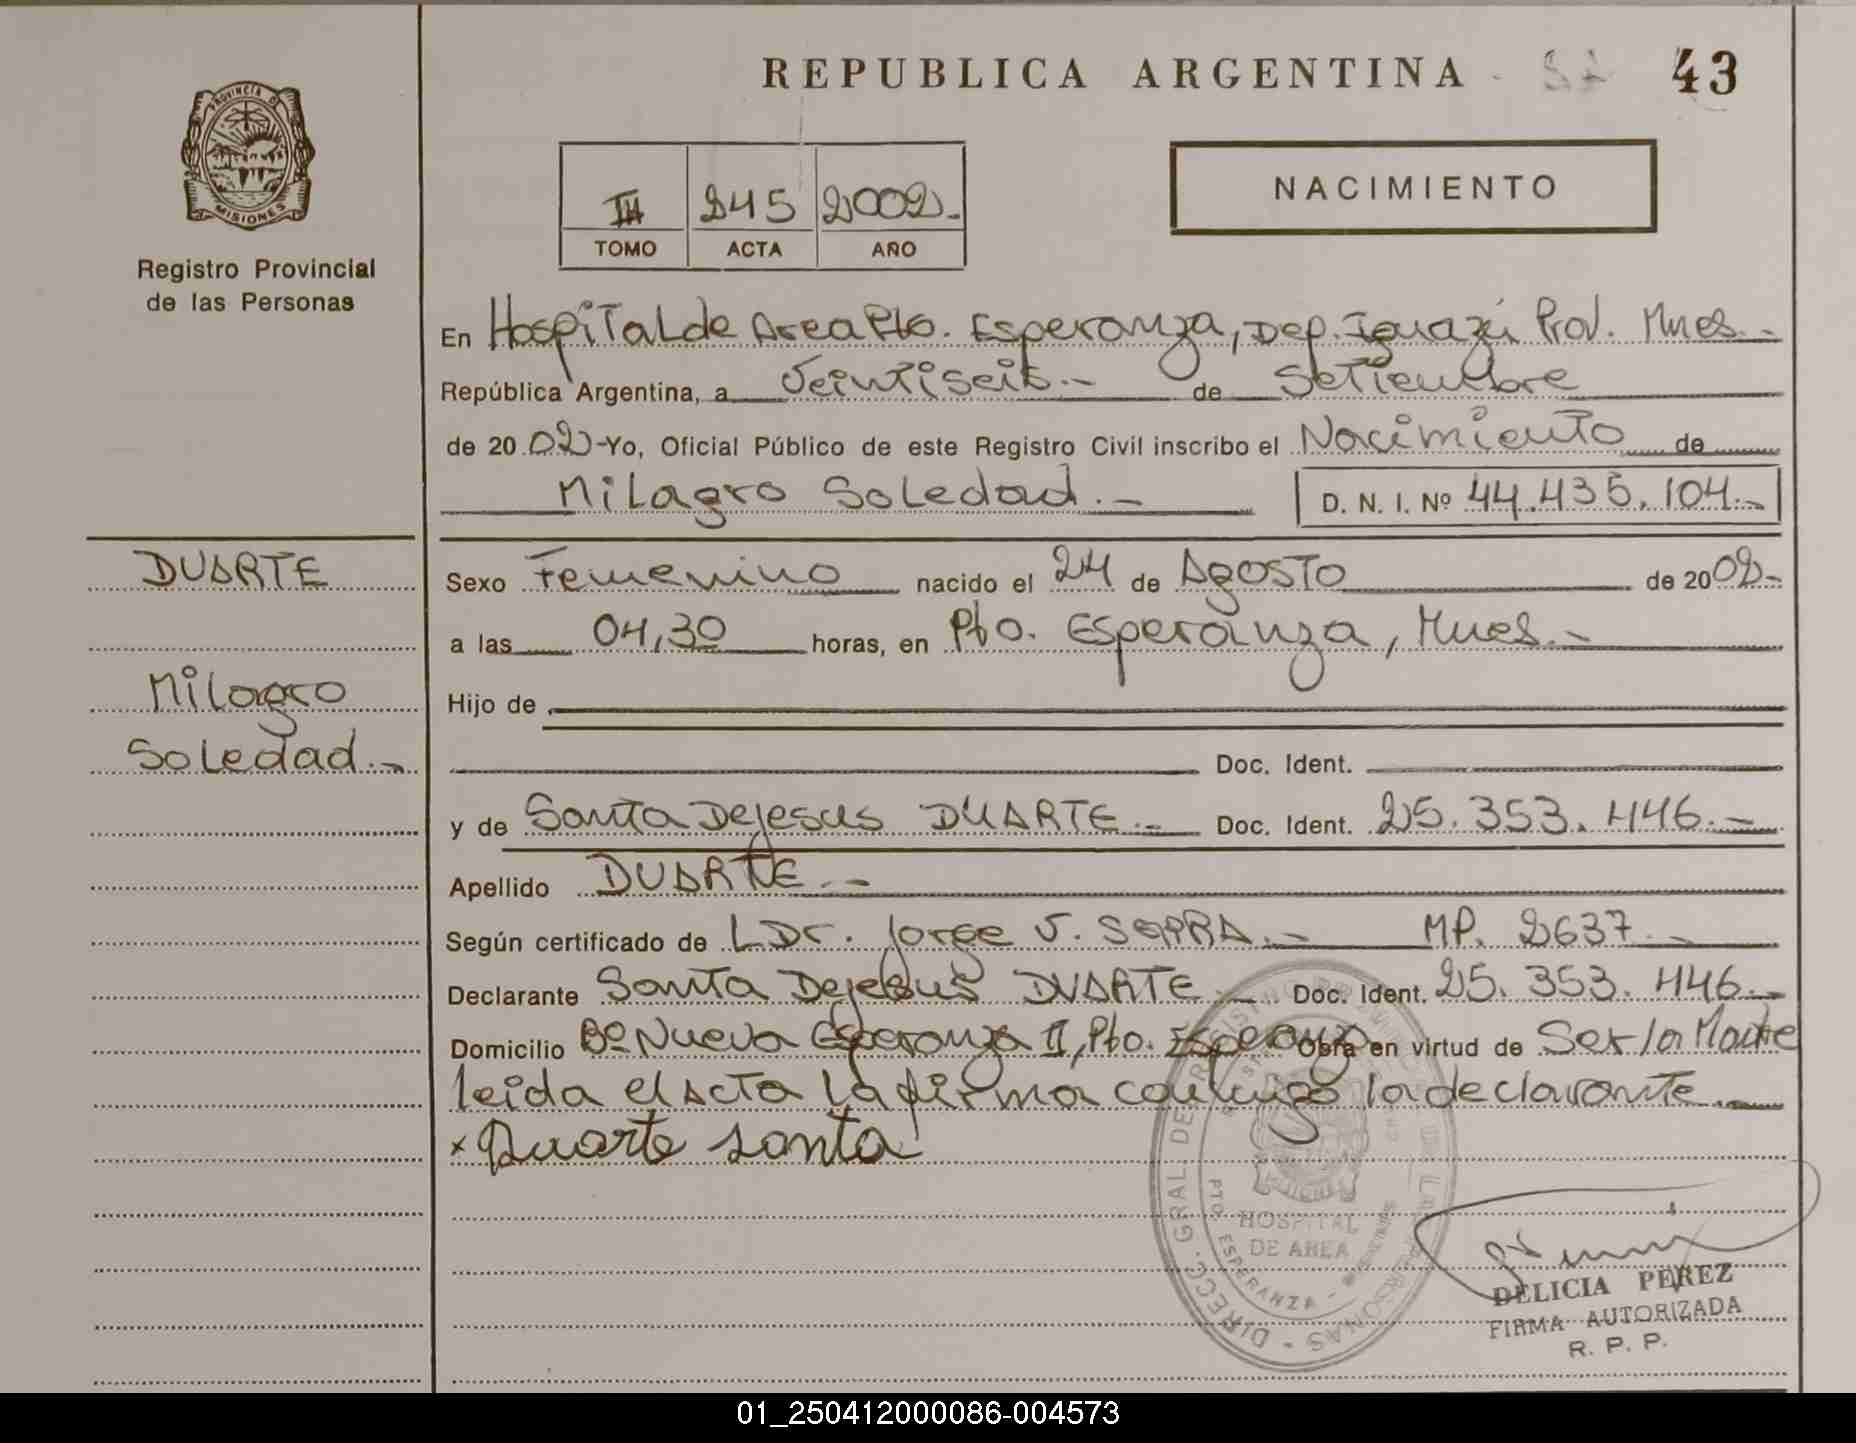 REPUBLICA ARGENTINA 43
PROVINCIA DE MISIONES
Registro Provincial
de las Personas
III 245 2002.-
TOMO ACTA AÑO
NACIMIENTO
En Hospital de Area Pto. Esperanza, Dep. Iguazú Prov. Mnes.-
República Argentina, a Veintiseis.- de Setiembre
de 2002-Yo, Oficial Público de este Registro Civil inscribo el Nacimiento de
Milagro Soledad.- D. N. I. Nº 44.435.104.-
DUARTE
Milagro
Soledad.-
Sexo Femenino nacido el 24 de Agosto de 2002-
a las 04,30 horas, en Pto. Esperanza, Mnes.-
Hijo de
Doc. Ident.
y de Santa Dejesus DUARTE.- Doc. Ident. 25.353.446.-
Apellido DUARTE.-
Según certificado de L Dr. Jorge V. SERRA.- MP. 2637.-
Declarante Santa Dejesus DUARTE.- Doc. Ident. 25.353.446.-
Domicilio Bº Nueva Esperanza II, Pto. Esperanza Obra en virtud de Ser la Madre
leida el Acta la firma conmigo la declarante.-
x Duarte santa
DIRECC. GRAL DE REGISTRO PROVINCIAL DE LAS PERSONAS
HOSPITAL
DE AREA
PTO. ESPERANZA - MISIONES
DELICIA PEREZ
FIRMA AUTORIZADA
R. P. P.
01_250412000086-004573